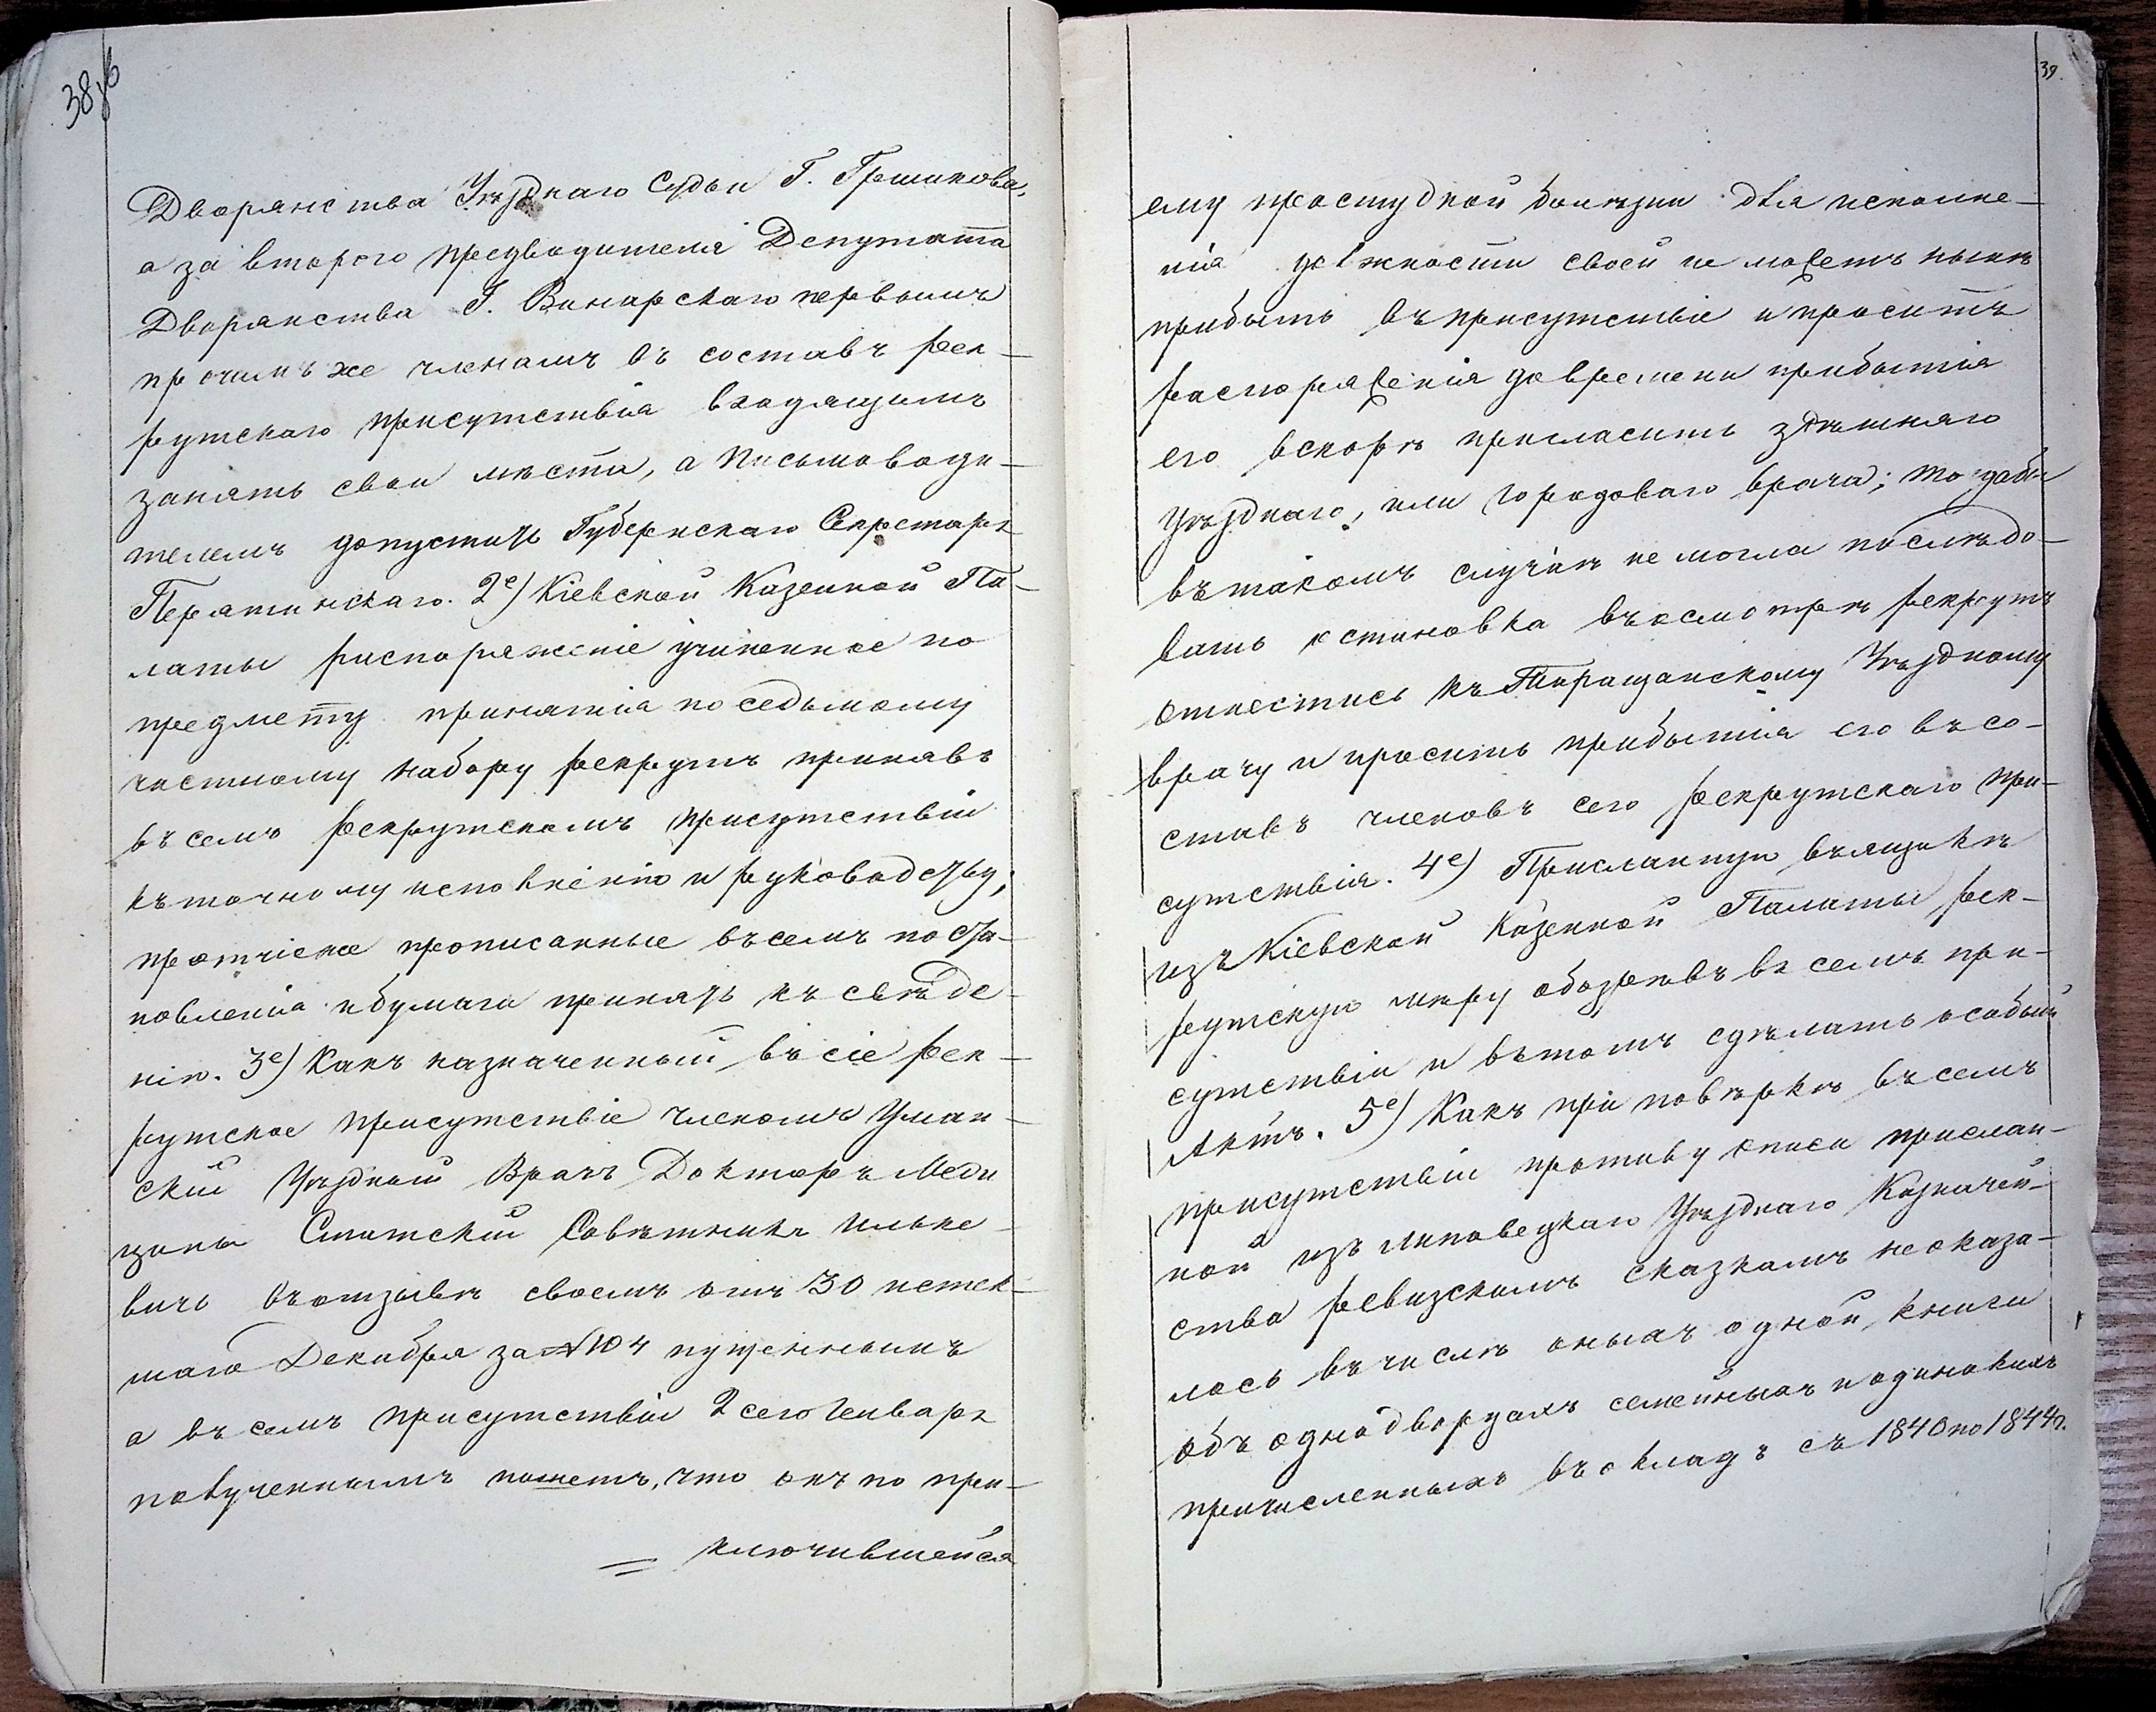 38 об
Дворянства Уѣзднаго Судьи Г. Гршикова,
а за втораго предводителя Депутата
Дворянства Г. Винарскаго первымъ
прочимъ же членамъ въ составъ рек-
рутскаго присутствія входящимъ
занять свои мѣста, а Письмоводи-
телемъ допустить Губернскаго Секретаря
Перятинскаго. 2е) Кіевской Казенной Па-
латы распоряженіе учиненное по
предмету принятія по седьмому
частному набору рекрутъ принявъ
въ семъ рекрутскомъ присутствіи
къ точному исполненію и руководству,
протчіе же прописанные въ семъ поста-
новленіи бумаги принять къ свѣде-
нію. 3е) Какъ назначенный въ сіе рек-
рутское присутствіе членомъ Уман-
скій Уѣздный Врачъ Докторъ Меди
цины Статскій Совѣтникъ Ильке-
вичъ въ отзывѣ своемъ отъ 30 истек-
шаго Декабря за № 104 пущеннымъ
а въ семъ присутствіи 2 сего Генваря
полученнымъ пишетъ, что онъ по при-
ключившейся
39.
ему простудной болѣзни для исполне-
нія должности своей не можетъ нынѣ
прибыть въ присутствіе и проситъ
распоряженія до времени прибытія
его вскорѣ пригласить здѣшняго
Уѣзднаго, или городоваго врача; то дабы
въ такомъ случаѣ не могла послѣдо-
вать остановка въ осмотрѣ рекрутъ
отнестись къ Таращанскому Уѣздному
врачу и просить прибытія его въ со-
ставъ членовъ сего рекрутскаго при-
сутствія. 4е) Присланную въ ящикѣ
изъ Кіевской Казенной Палаты рек-
рутскую мѣру обозрѣвъ въ семъ при-
сутствіи и въ томъ сдѣлать особый
Актъ. 5е) Какъ при повѣркѣ въ семъ
присутствіи противу описи прислан-
ной изъ Липовецкаго Уѣзднаго Казначей-
ства ревизскимъ сказкамъ не оказа-
лось въ числѣ оныхъ одной книги
объ однодворцахъ семейныхъ и одинокихъ
причисленныхъ въ окладъ съ 1840 по 1844 г.